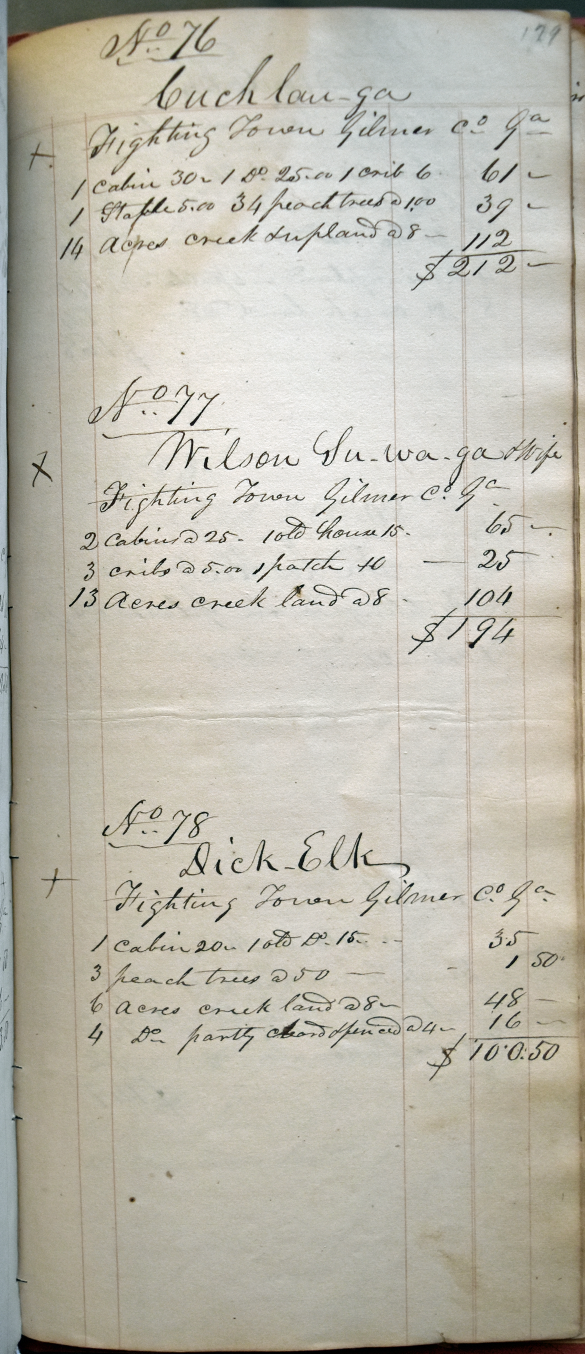 129
No 76
Cuch lau-ga
+ Fighting Town Gilmer Co Ga
1 cabin 30 - 1 Do 25.00 1 crib 6 61 -
1 Stable 5.00 34 peach trees @ 1.00 39 -
14 Acres creek & upland @ 8 - 112
$ 212 -
No 77
Wilson Su-wa-ga & Wife
x Fighting Town Gilmer Co Ga
2 cabins @ 25 - 1 old house 15 - 65 -
3 cribs @ 5.00 1 patch 10 — 25
13 Acres creek land @ 8 - 104
$ 194
No 78
Dick-Elk
+ Fighting Town Gilmer Co Ga
1 cabin 20 - 1 old Do 15 - - - 35
3 peach trees @ 50 — - 1 50
6 Acres creek land @ 8 - 48 -
4 Do partly cleard & fenced @ 4 - 16 -
$ 100.50